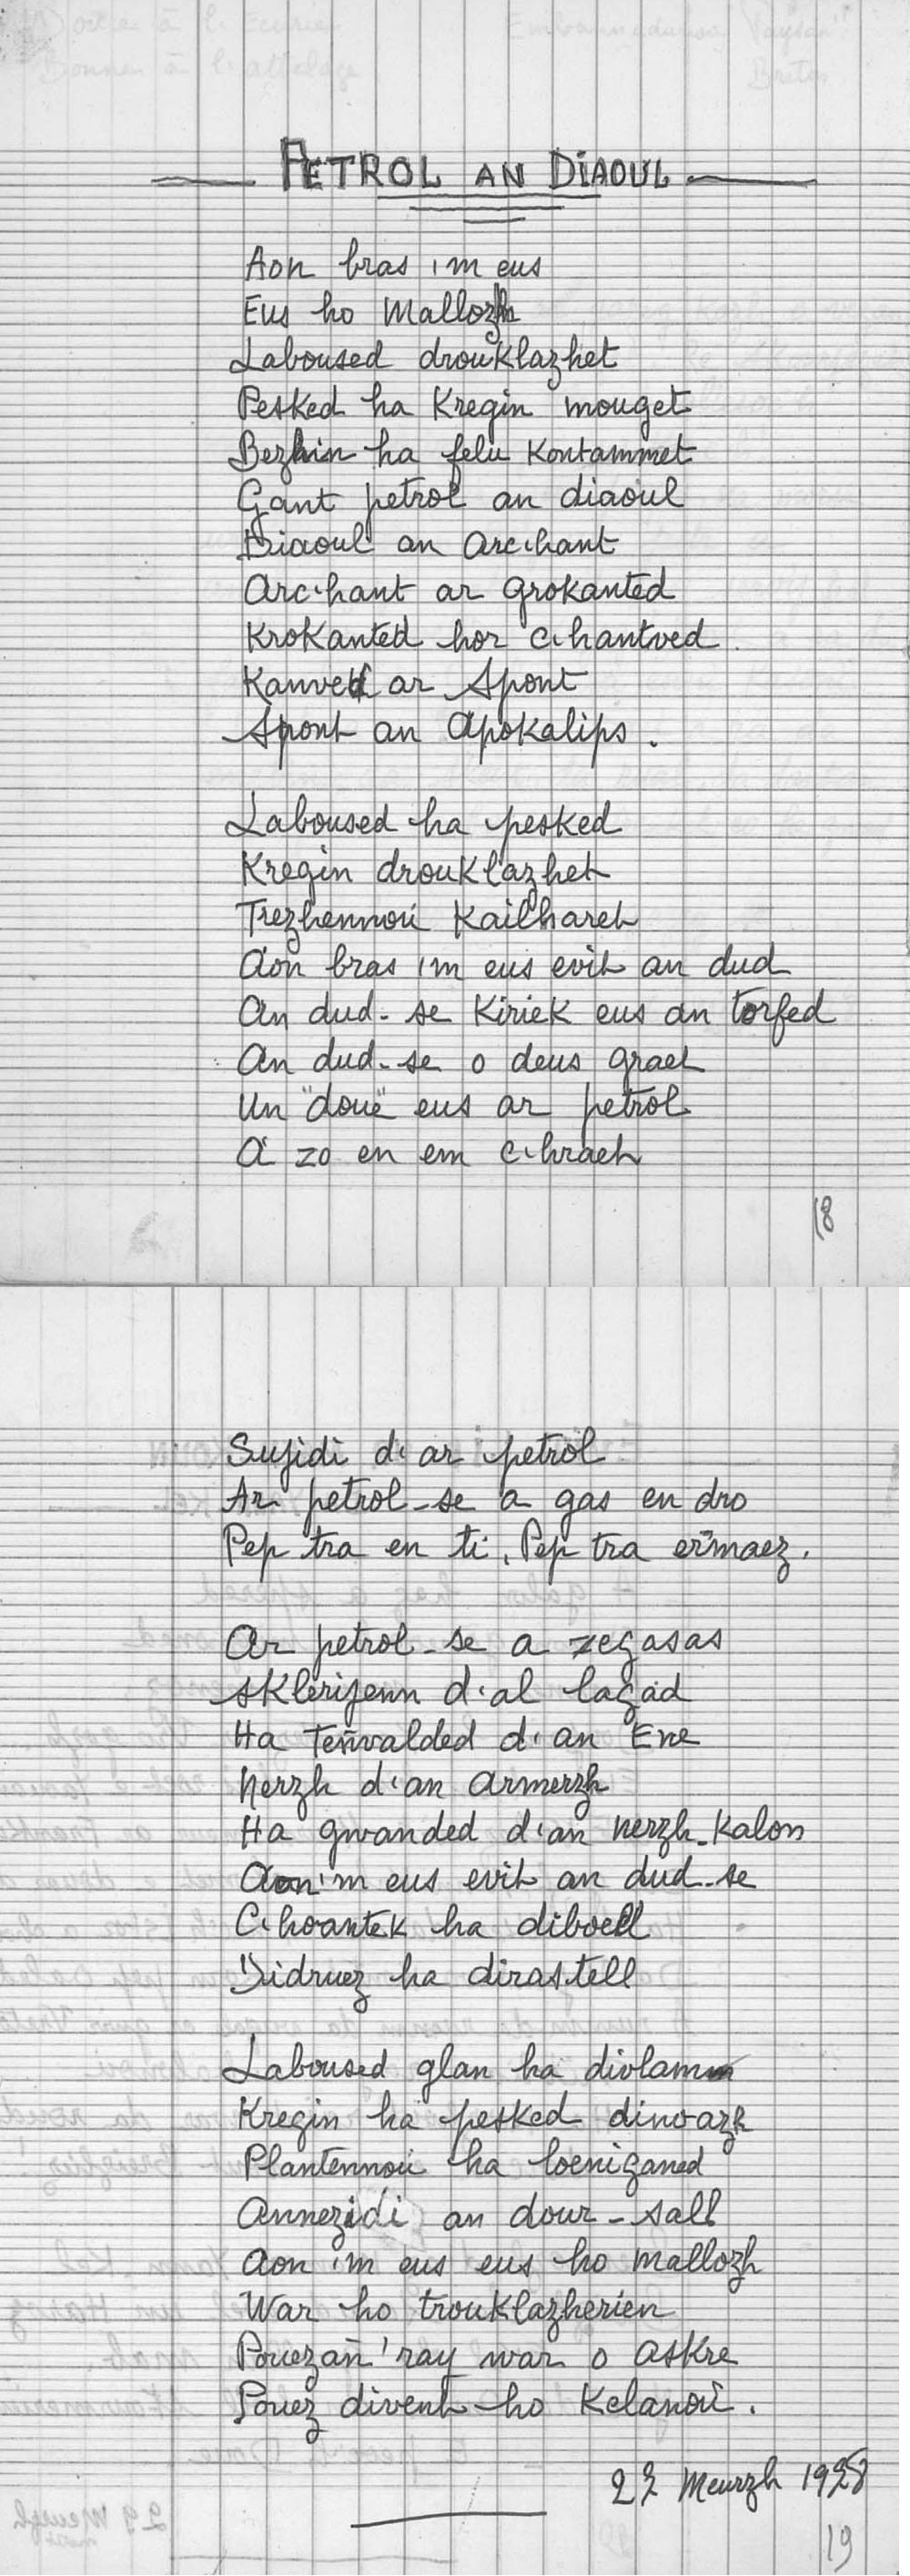 PETROL AN DIAOUL
Aon bras 'm eus
Eus ho Mallozh
Laboused drouklazhet
Pesked ha Kregin mouget
Bezhin ha felu Kontammet
Gant petrol an diaoul
Diaoul an Arc'hant
Arc'hant ar grokanted
Krokanted hor c'hantved.
Kanved ar Spont
Spont an Apokalips.
Laboused ha pesked
Kregin drouklazhet
Trezhennoù Kailharet
Aon bras 'm eus evit an dud
An dud-se Kiriek eus an torfed
An dud-se o deus graet
Un "doue" eus ar petrol
A zo en em c'hraet
18
Sujidi d'ar petrol
Ar petrol-se a gas en dro
Pep tra en ti, Pep tra er maez.
Ar petrol-se a zegasas
Sklerijenn d'al lagad
Ha Teñvalded d'an Ene
Nerzh d'an Armerzh
Ha gwanded d'an nerzh-Kalon
Aon'm eus evit an dud-se
C'hoantek ha diboell
Didruez ha dirastell
Laboused glan ha divlamm
Kregin ha pesked dinoazh
Plantennoù ha loeniganed
Annezidi an dour-sall
Aon 'm eus eus ho mallozh
War ho trouklazherien
Pouezañ 'ray war o askre
Pouez divent ho Kelanoù.
Meurzh
19